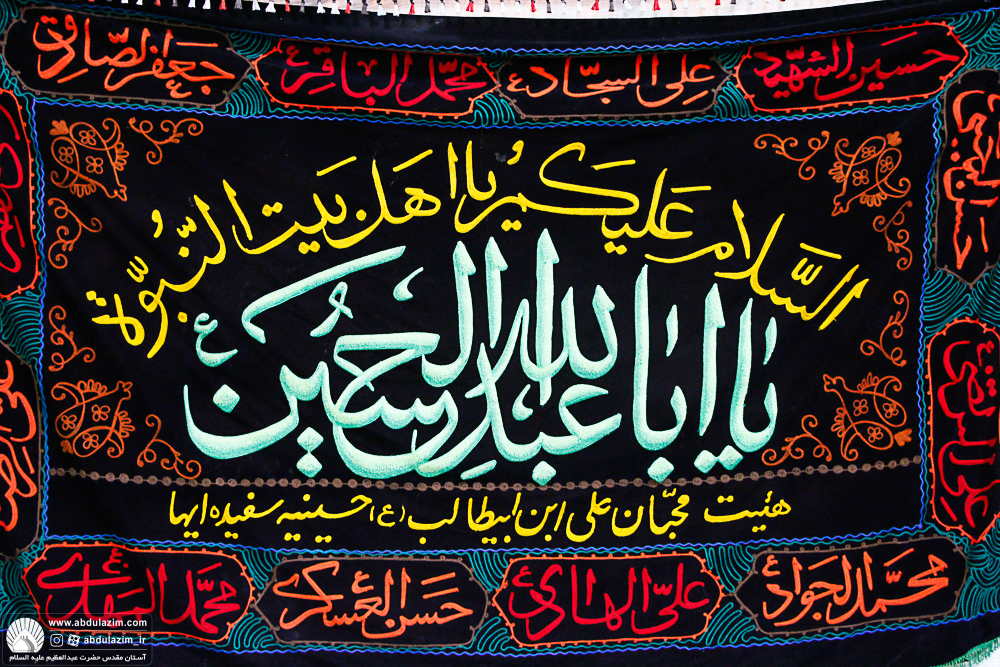 حسین الشهید
علی السجاد ع
محمد الباقر ع
جعفر الصادق ع
حسن المجتبی
السَّلام عَلَیکُم یا اهل بَیت النُّبُوَّة
یا ابا عبدالله الحسین ع
علی ابن موسی
هیئت محبّان علی ابن ابیطالب (ع) حسینیه سفیده ایها
محمد الجواد ع
علی الهادی ع
حسن العسکری ع
محمّد المهدی
www.abdulazim.com
abdulazim_ir
آستان مقدس حضرت عبدالعظیم علیه السلام